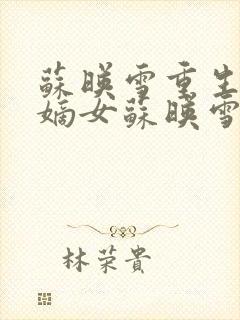 蘇暎雪重生
嫡女蘇暎雪
林荣貴